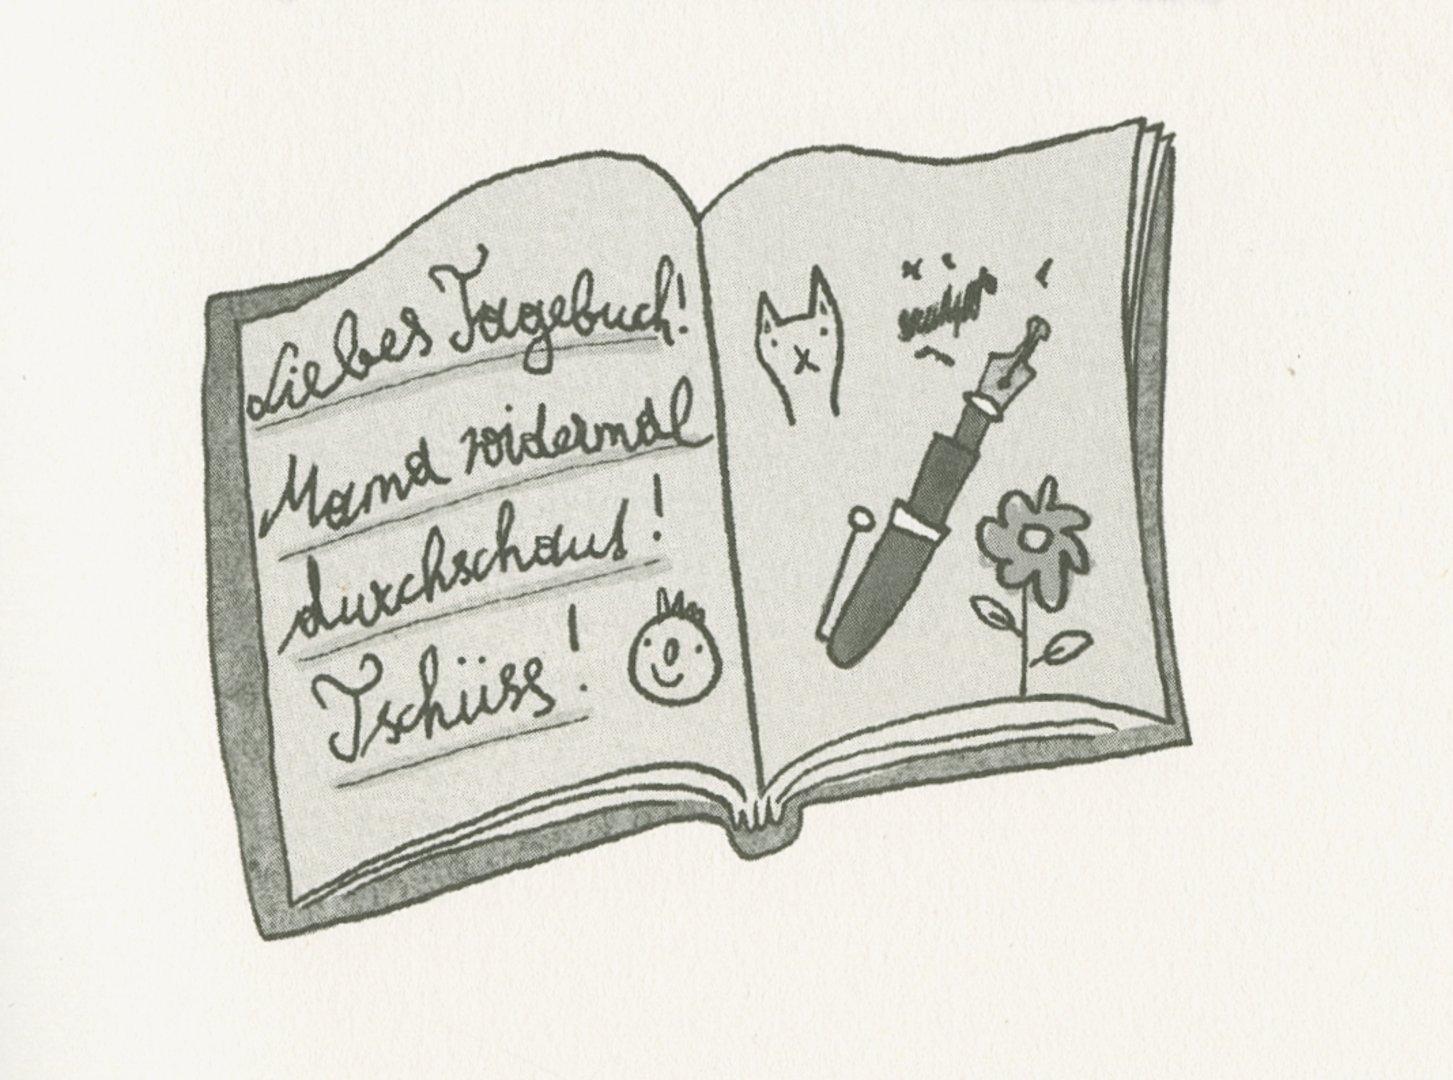 Liebes Tagebuch!
Mama widermal
durchschaut!
Tschüss!